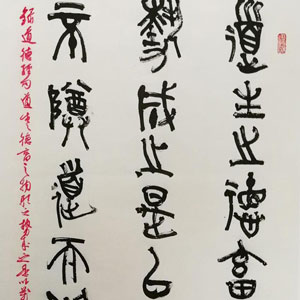 道生之德畜
勢成之是以
不尊道而
錄道德經句道生之德畜之物形之勢成之是以萬